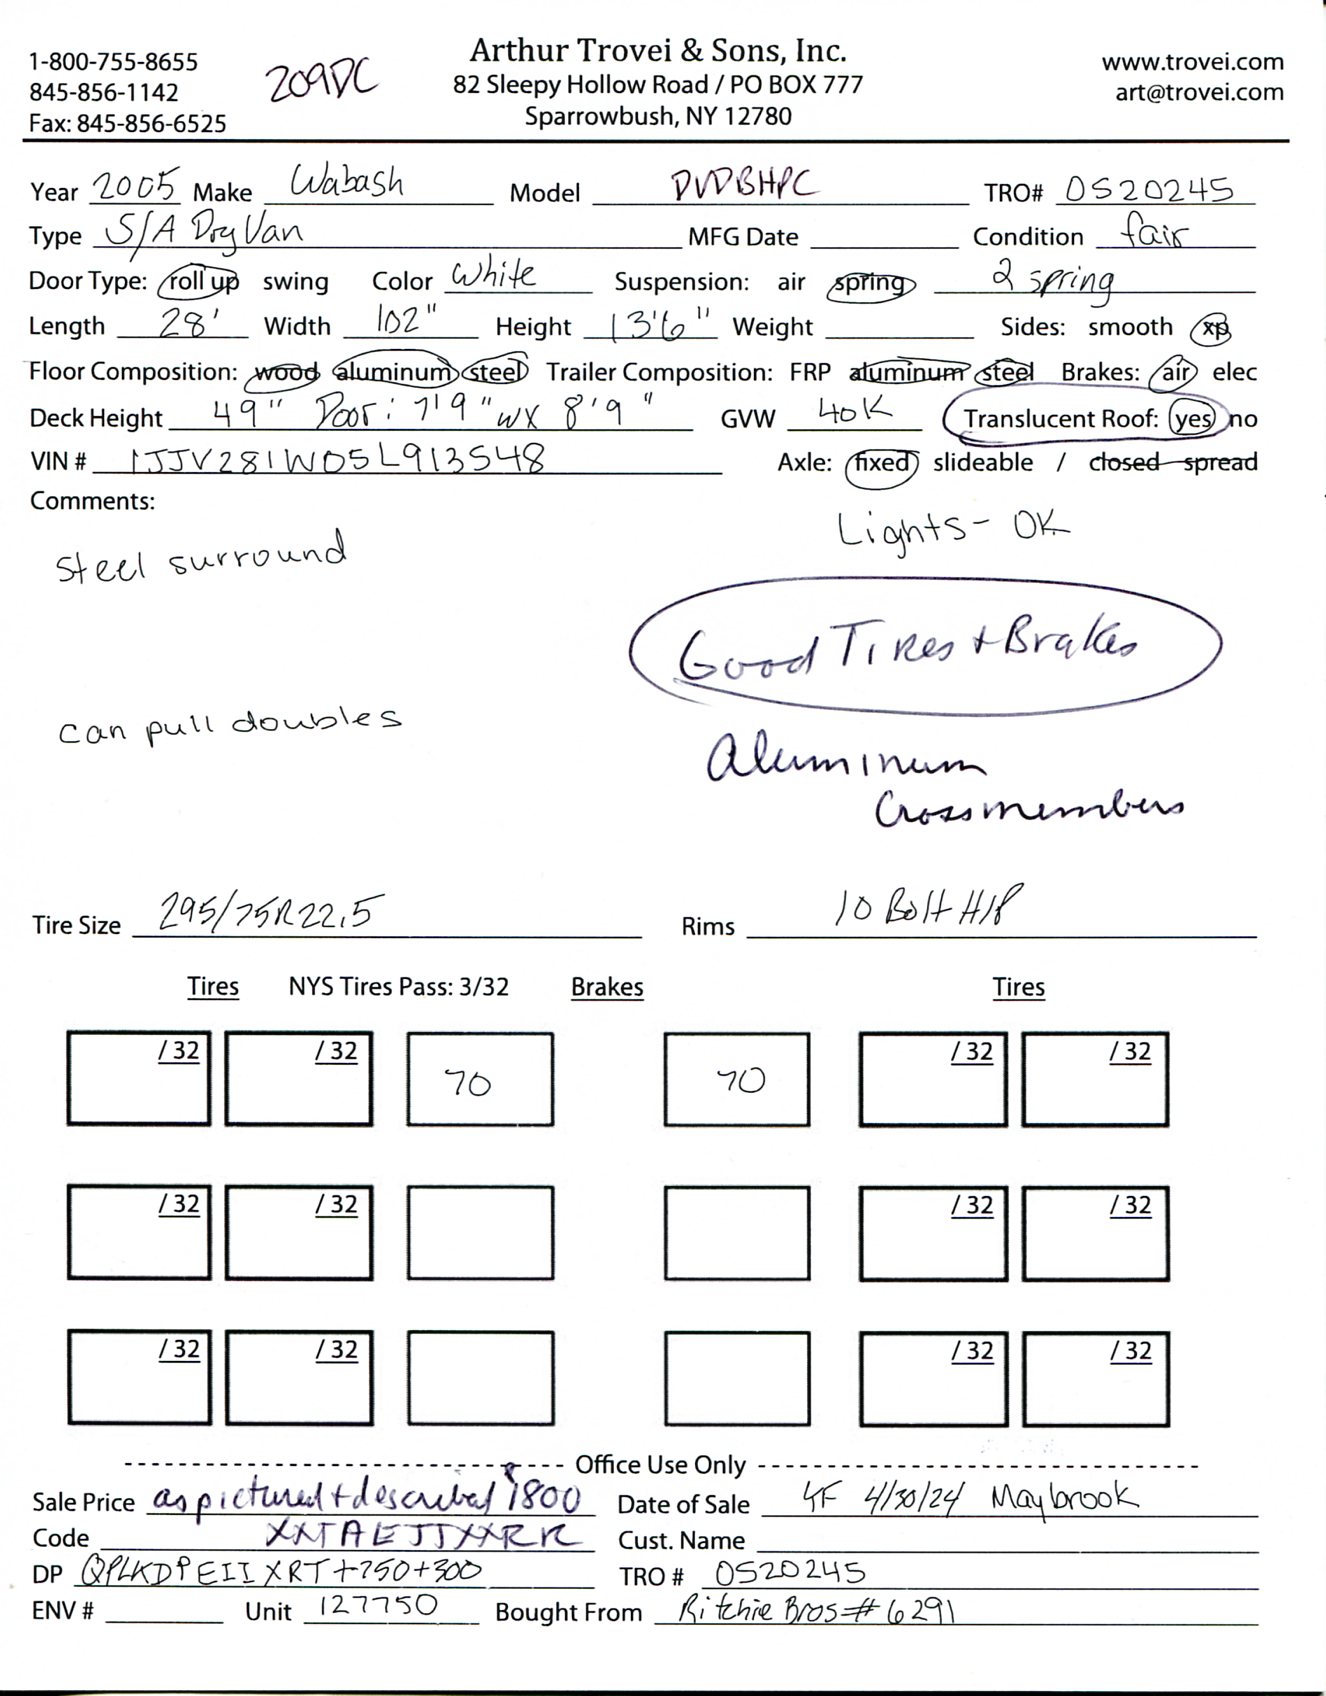 1-800-755-8655
845-856-1142
Fax: 845-856-6525
209DC
Arthur Trovei & Sons, Inc.
82 Sleepy Hollow Road / PO BOX 777
Sparrowbush, NY 12780
www.trovei.com
art@trovei.com
Year 2005 Make Wabash Model DVDBHPC TRO# OS20245
Type S/A Dry Van MFG Date Condition fair
Door Type: roll up swing Color White Suspension: air spring 2 spring
Length 28' Width 102" Height 13'6" Weight Sides: smooth xp
Floor Composition: wood aluminum steel Trailer Composition: FRP aluminum steel Brakes: air elec
Deck Height 49" Door: 7'9"w x 8'9" GVW 40K Translucent Roof: yes no
VIN # 1JJV281W05L913548 Axle: fixed slideable / closed spread
Comments:
Lights- OK
steel surround
Good Tires + Brakes
can pull doubles
Aluminum
Crossmembers
Tire Size 295/75R22.5 Rims 10 Bolt H/P
Tires NYS Tires Pass: 3/32 Brakes Tires
/32 /32 70 70 /32 /32
/32 /32 /32 /32
/32 /32 /32 /32
Office Use Only
Sale Price as pictured + described 1800 Date of Sale 4/30/24 Maybrook
Code Cust. Name
DP QPLKDPEIIXRT+750+300 TRO # OS20245
ENV # Unit 127750 Bought From Ritchie Bros # 6291